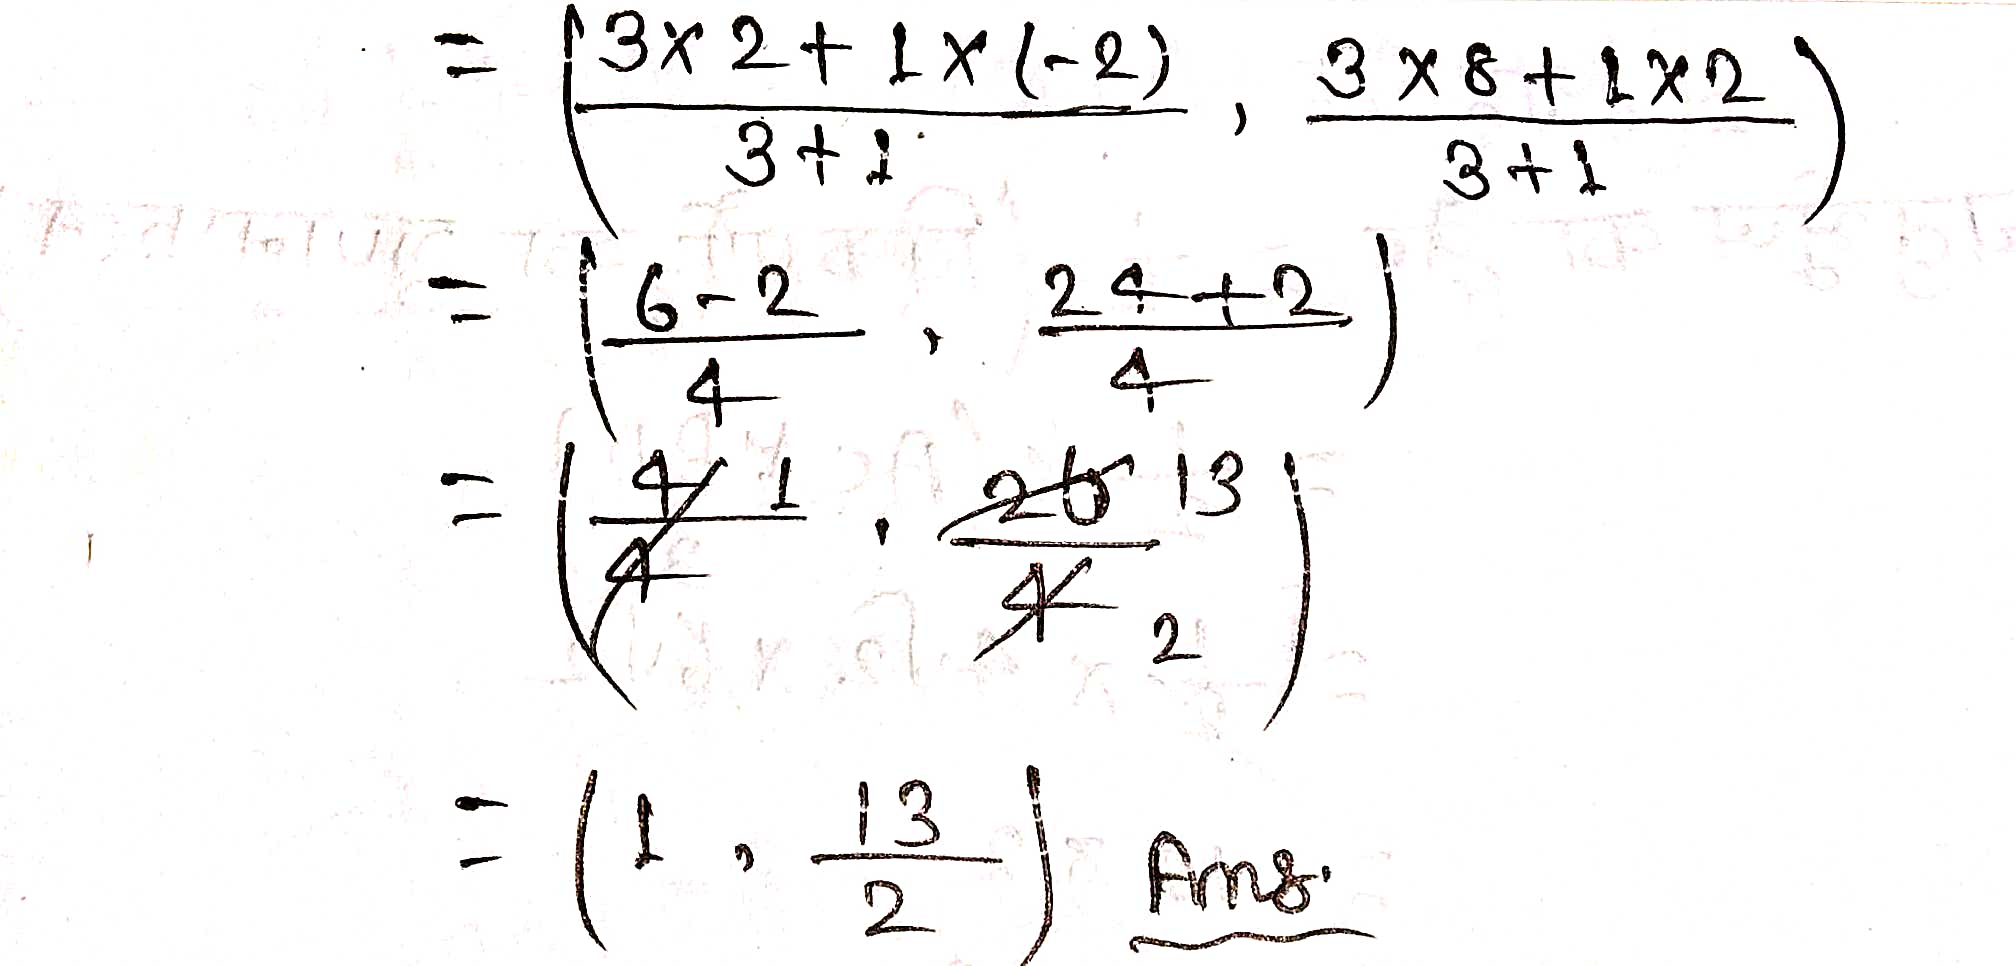 = ( (3×2+1×(-2))/(3+1) , (3×8+1×2)/(3+1) )
= ( (6-2)/4 , (24+2)/4 )
= ( 4/4 1 , 26/4 13/2 )
= ( 1 , 13/2 ) Ans.